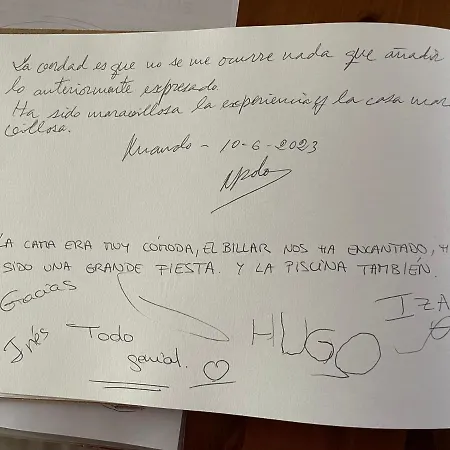 La verdad es que no se me ocurre nada que añadir
lo anteriormente expresado.
Ha sido maravillosa la experiencia y la casa mar
villosa.
10-6-2023
LA CAMA ERA MUY CÓMODA, EL BILLAR NOS HA ENCANTADO, H
SIDO UNA GRANDE FIESTA. Y LA PISCINA TAMBIÉN.
Gracias
IZA
HUGO
Inés Todo
genial.